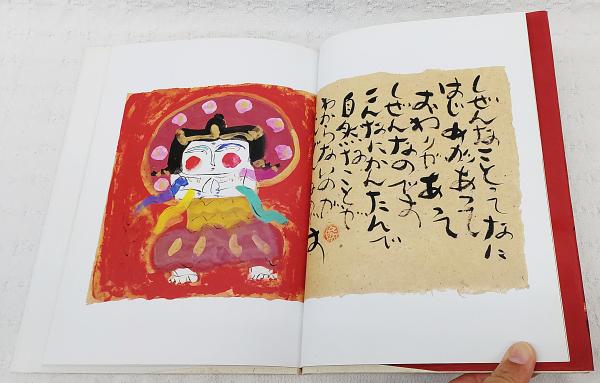 しぜんなことってなに
はじめがあって
おわりがあって
しぜんなのです
こんなにかんたんで
自然なことが
わからないのが